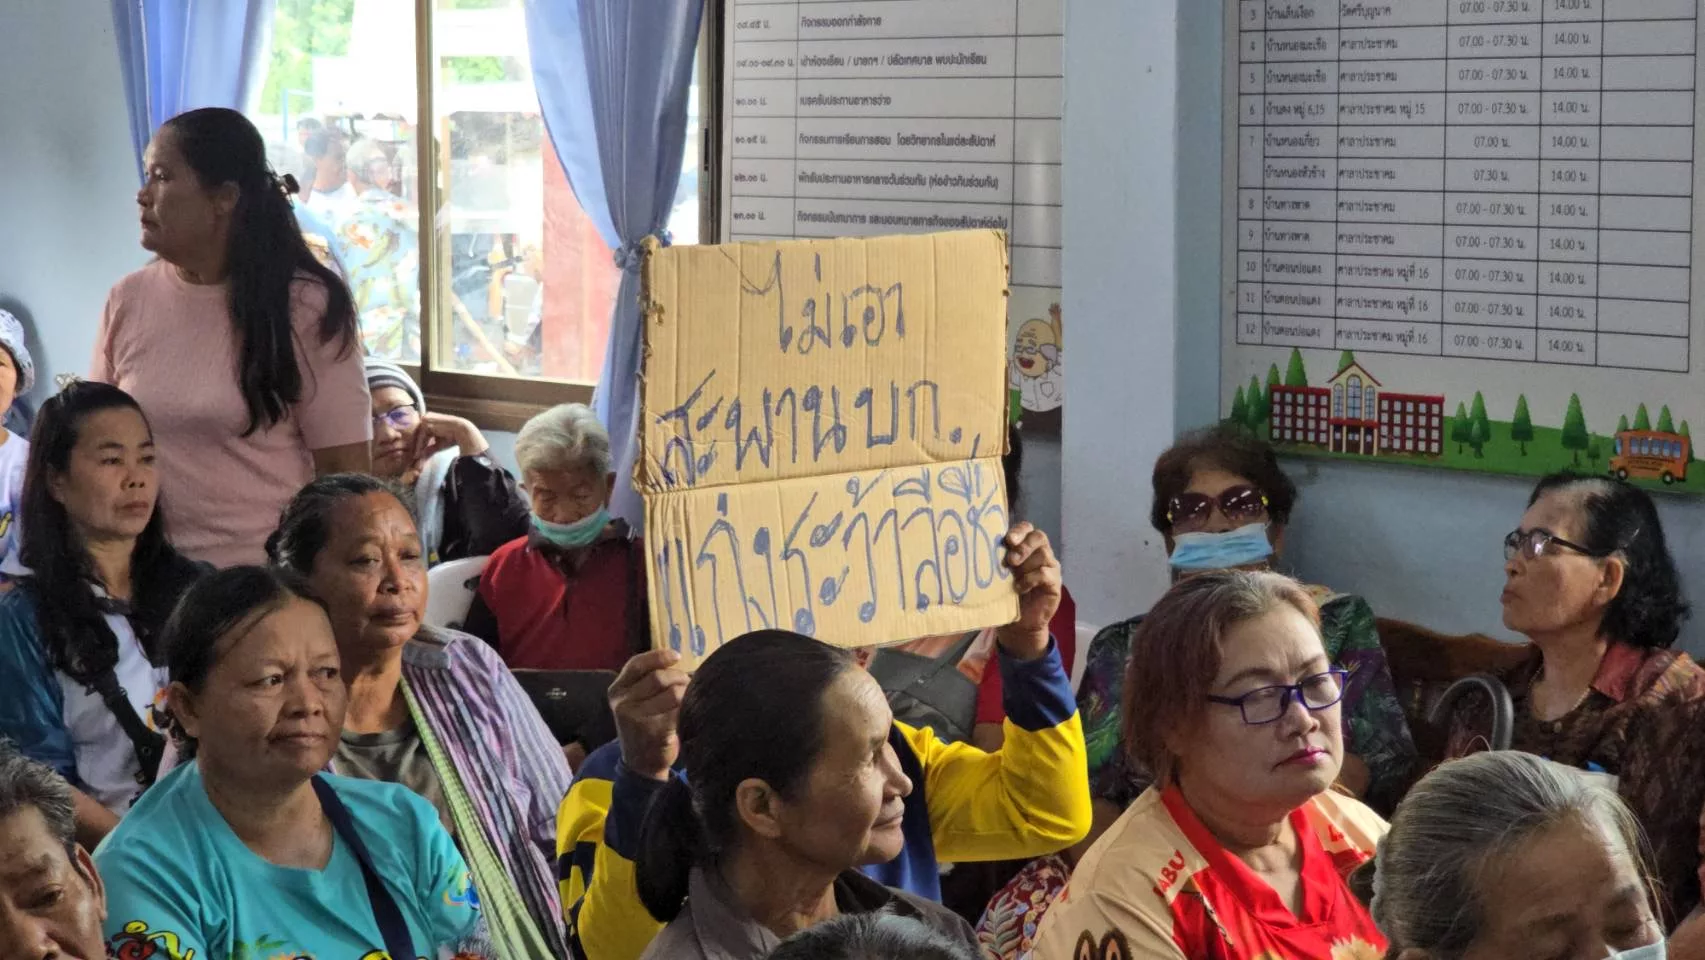 ๐๘.๔๕ น. กิจกรรมออกกำลังกาย
๐๙.๐๐-๐๙.๓๐ น. เข้าห้องเรียน / นายกฯ / ปลัดเทศบาล พบปะนักเรียน
๑๐.๐๐ น. เบรครับประทานอาหารว่าง
๑๐.๑๕ น. กิจกรรมการเรียนการสอน โดยวิทยากรในแต่ละสัปดาห์
๑๒.๐๐ น. พักรับประทานอาหารกลางวันร่วมกัน (ห่อข้าวกินร่วมกัน)
๑๓.๐๐ น. กิจกรรมนันทนาการ และมอบหมายภารกิจของสัปดาห์ต่อไป
3 07.00 - 07.30 น. 14.00 น.
4 บ้านหนองมะเขือ ศาลาประชาคม 07.00 - 07.30 น. 14.00 น.
5 บ้านหนองมะเขือ ศาลาประชาคม 07.00 - 07.30 น. 14.00 น.
6 บ้านดง หมู่ 6,15 ศาลาประชาคม หมู่ 15 07.00 - 07.30 น. 14.00 น.
7 บ้านหนองเกี่ยว ศาลาประชาคม 07.00 น. 14.00 น.
บ้านหนองหัวช้าง ศาลาประชาคม 07.30 น. 14.00 น.
8 บ้านทางพาด ศาลาประชาคม 07.00 - 07.30 น. 14.00 น.
9 บ้านทางพาด ศาลาประชาคม 07.00 - 07.30 น. 14.00 น.
10 บ้านดอนปอแดง ศาลาประชาคม หมู่ที่ 16 07.00 - 07.30 น. 14.00 น.
11 บ้านดอนปอแดง ศาลาประชาคม หมู่ที่ 16 07.00 - 07.30 น. 14.00 น.
12 บ้านดอนปอแดง ศาลาประชาคม หมู่ที่ 16 07.00 - 07.30 น. 14.00 น.
ไม่เอา
สะพานบก.
แก่งระว้าลือชื่อ